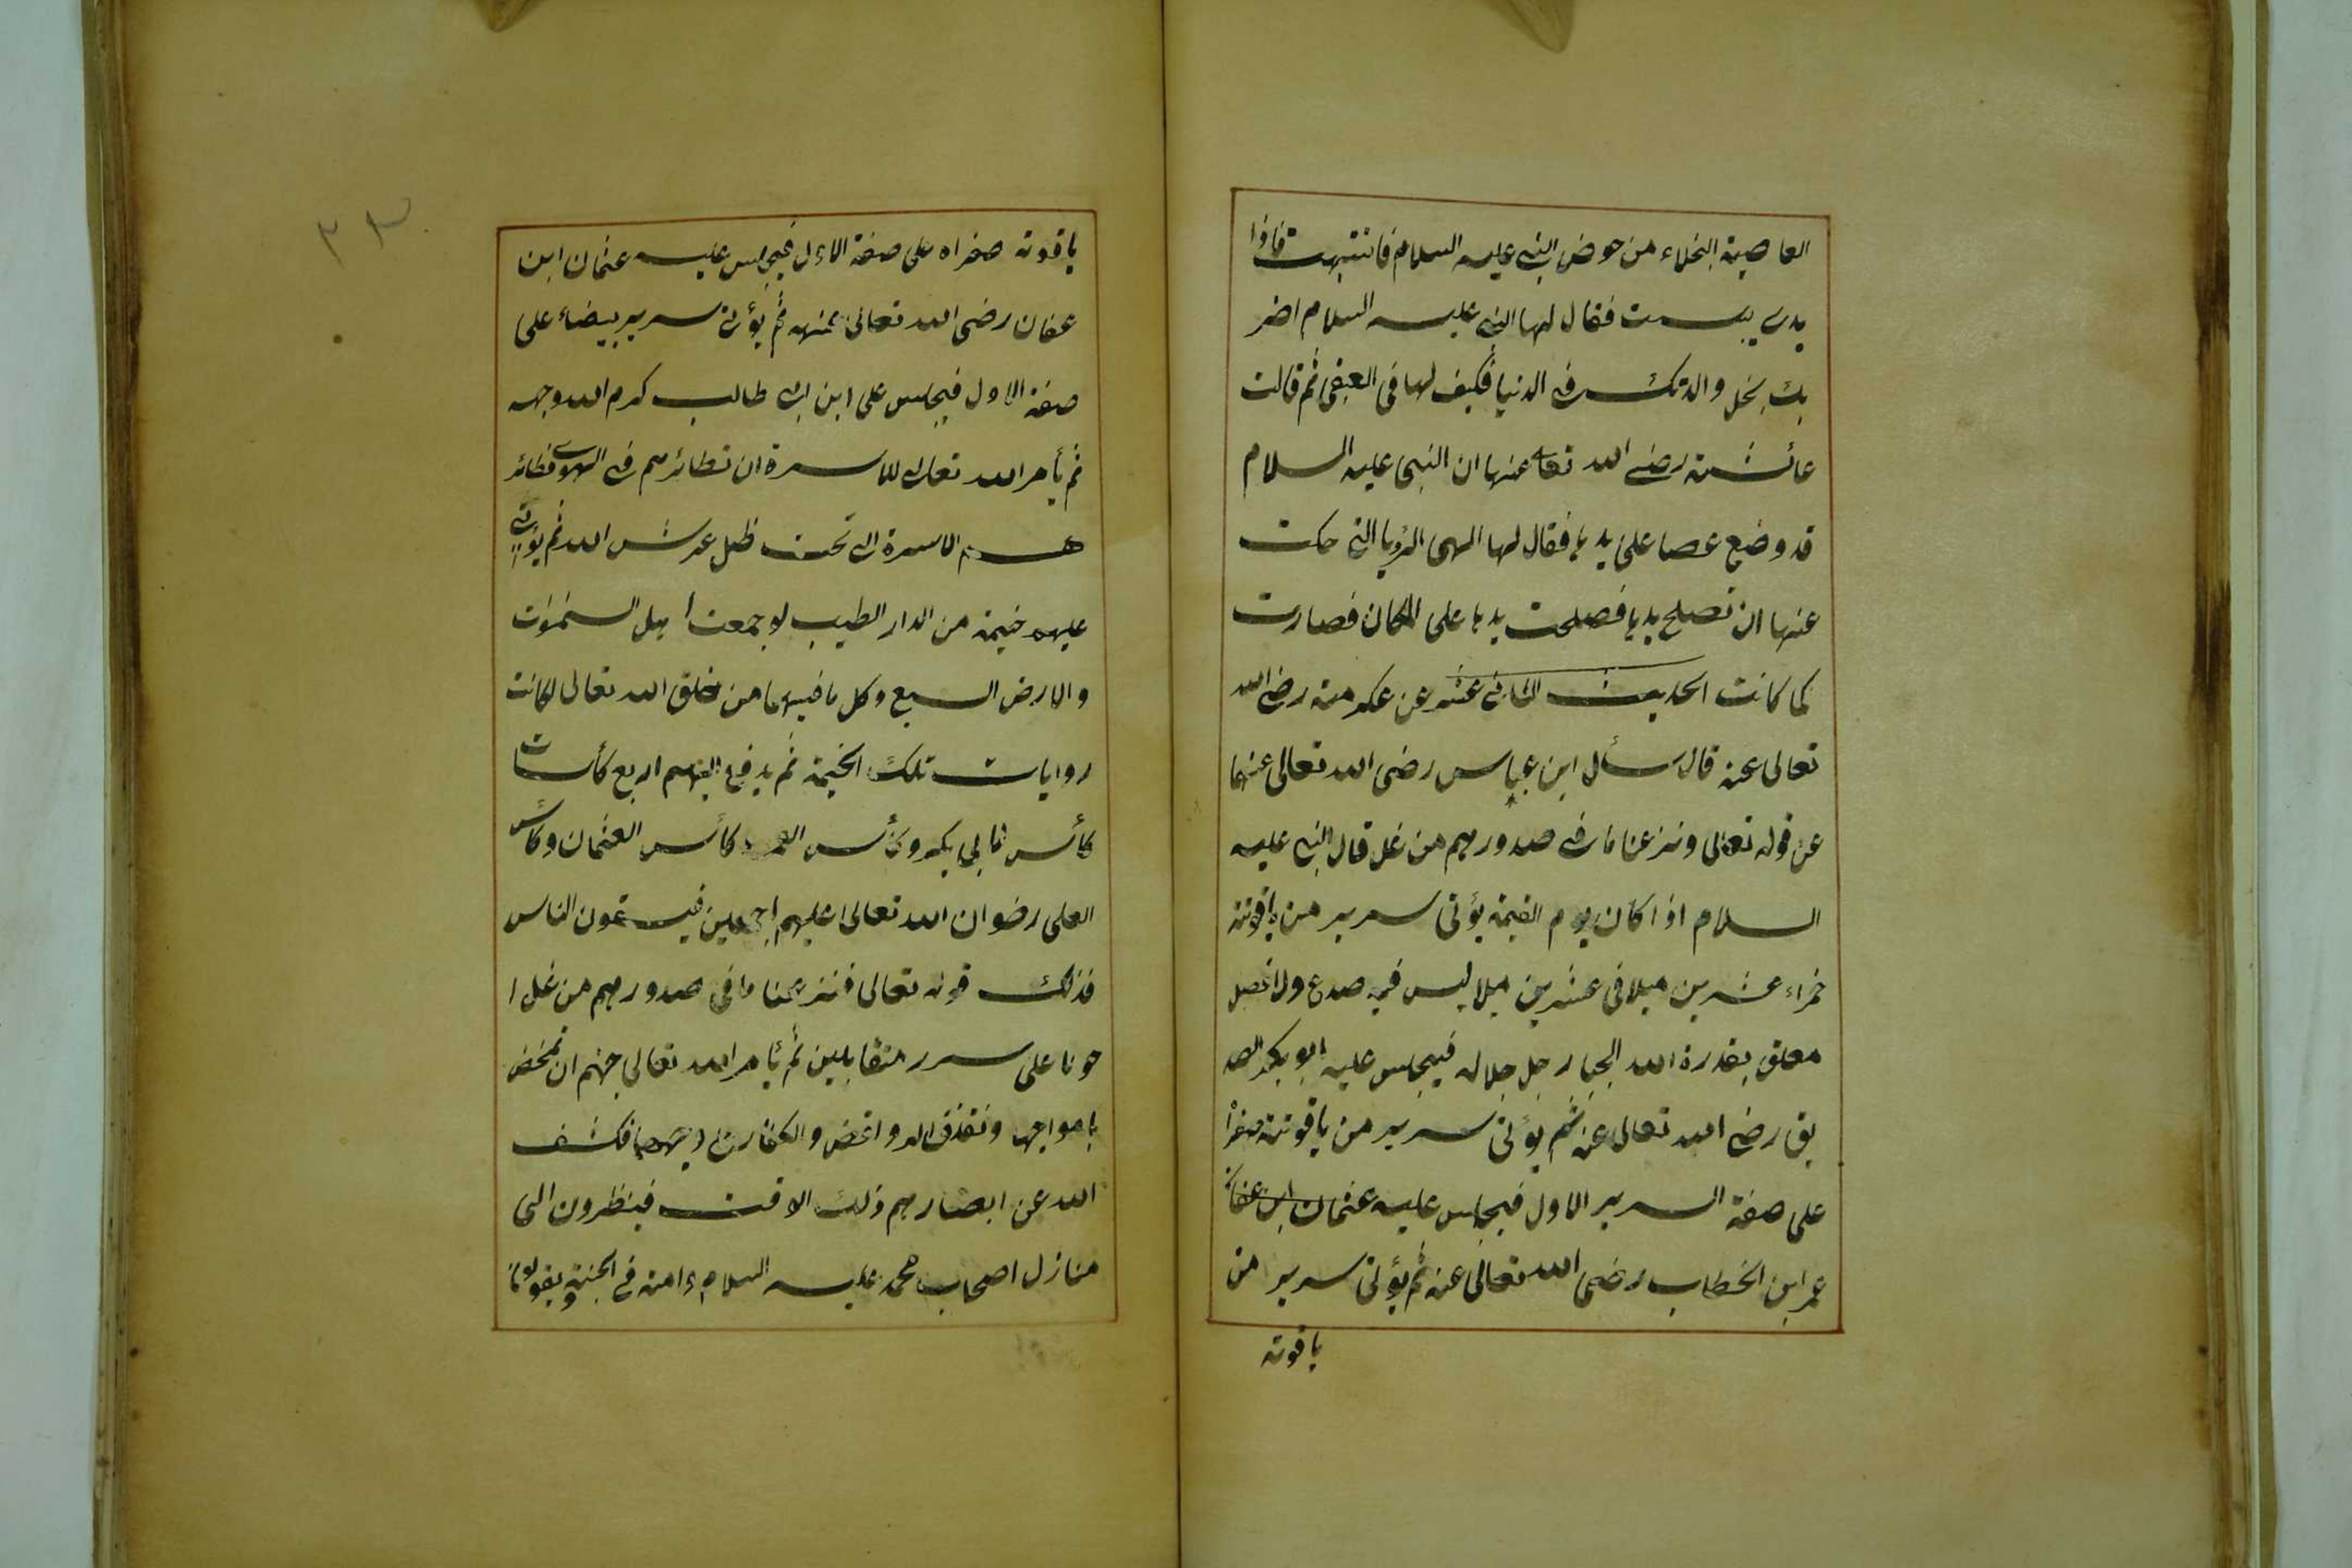 العاصية البخلاء من حوض النبي عليه السلام فانتبهت فاذا
يدى يبست فقال لها النبي عليه السلام اضر
بك بخل والدتك في الدنيا فكيف لها في العقبى ثم قالت
عائشة رضي الله تعا عنها ان النبي عليه السلام
قد وضع عصا على يدها فقال لها الهى الرؤيا التى حكت
عنها ان تصلح يدها فصلحت يدها على المكان فصارت
كما كانت الحديث الثاني عشر عن عكرمة رضي الله
تعالى عنه قال سأل ابن عباس رضى الله تعالى عنهما
عن قوله تعالى ونزعنا ما في صدورهم من غل قال النبي عليه
السلام اذا كان يوم القيمة يؤتى سرير من ياقوتة
حمراء عشرين ميلا في عشرين ميلا ليس فيه صدع ولا فصل
معلق بقدرة الله الجبار جل جلاله فيجلس عليه ابو بكر الصد
يق رضي الله تعالى عنه ثم يؤتى سرير من ياقوتة صفرا
على صفة السرير الاول فيجلس عليه عثمان ابن عفان
عمر ابن الخطاب رضى الله تعالى عنه ثم يؤتى سرير من
ياقوتة
٣٣
ياقوتة صفراء على صفة الاول فيجلس عليه عثمان ابن
عفان رضى الله تعالى عنهه ثم يؤتى سرير بيضاء على
صفة الاول فيجلس على ابن ابي طالب كرم الله وجهه
ثم يأمر الله تعالى للاسرة ان تطائرهم في الهوى فطائر
هم الاسرة الى تحت ظل عرش الله ثم يؤتى
عليهم خيمة من الدار الطيب لو جمعت اهل السموات
والارض السبع وكل ما فيهما من خلق الله تعالى لكانت
روايات تلك الخيمة ثم يدفع اليهم اربع كأسات
كأس لابي بكر وكأس العمر كأس العثمان وكأس
العلى رضوان الله تعالى عليهم اجمعين فيسقون الناس
فذلك قوله تعالى فنزعنا ما في صدورهم من غل ا
خونا على سرر متقابلين ثم يأمر الله تعالى جهنم ان تمخض
بامواجها وتقذف الروافض والكفار فكشف
الله عن ابصارهم ذلك الاقت فينظرون الى
منازل اصحاب محمد عليه السلام وامته في الجنة ويقولون